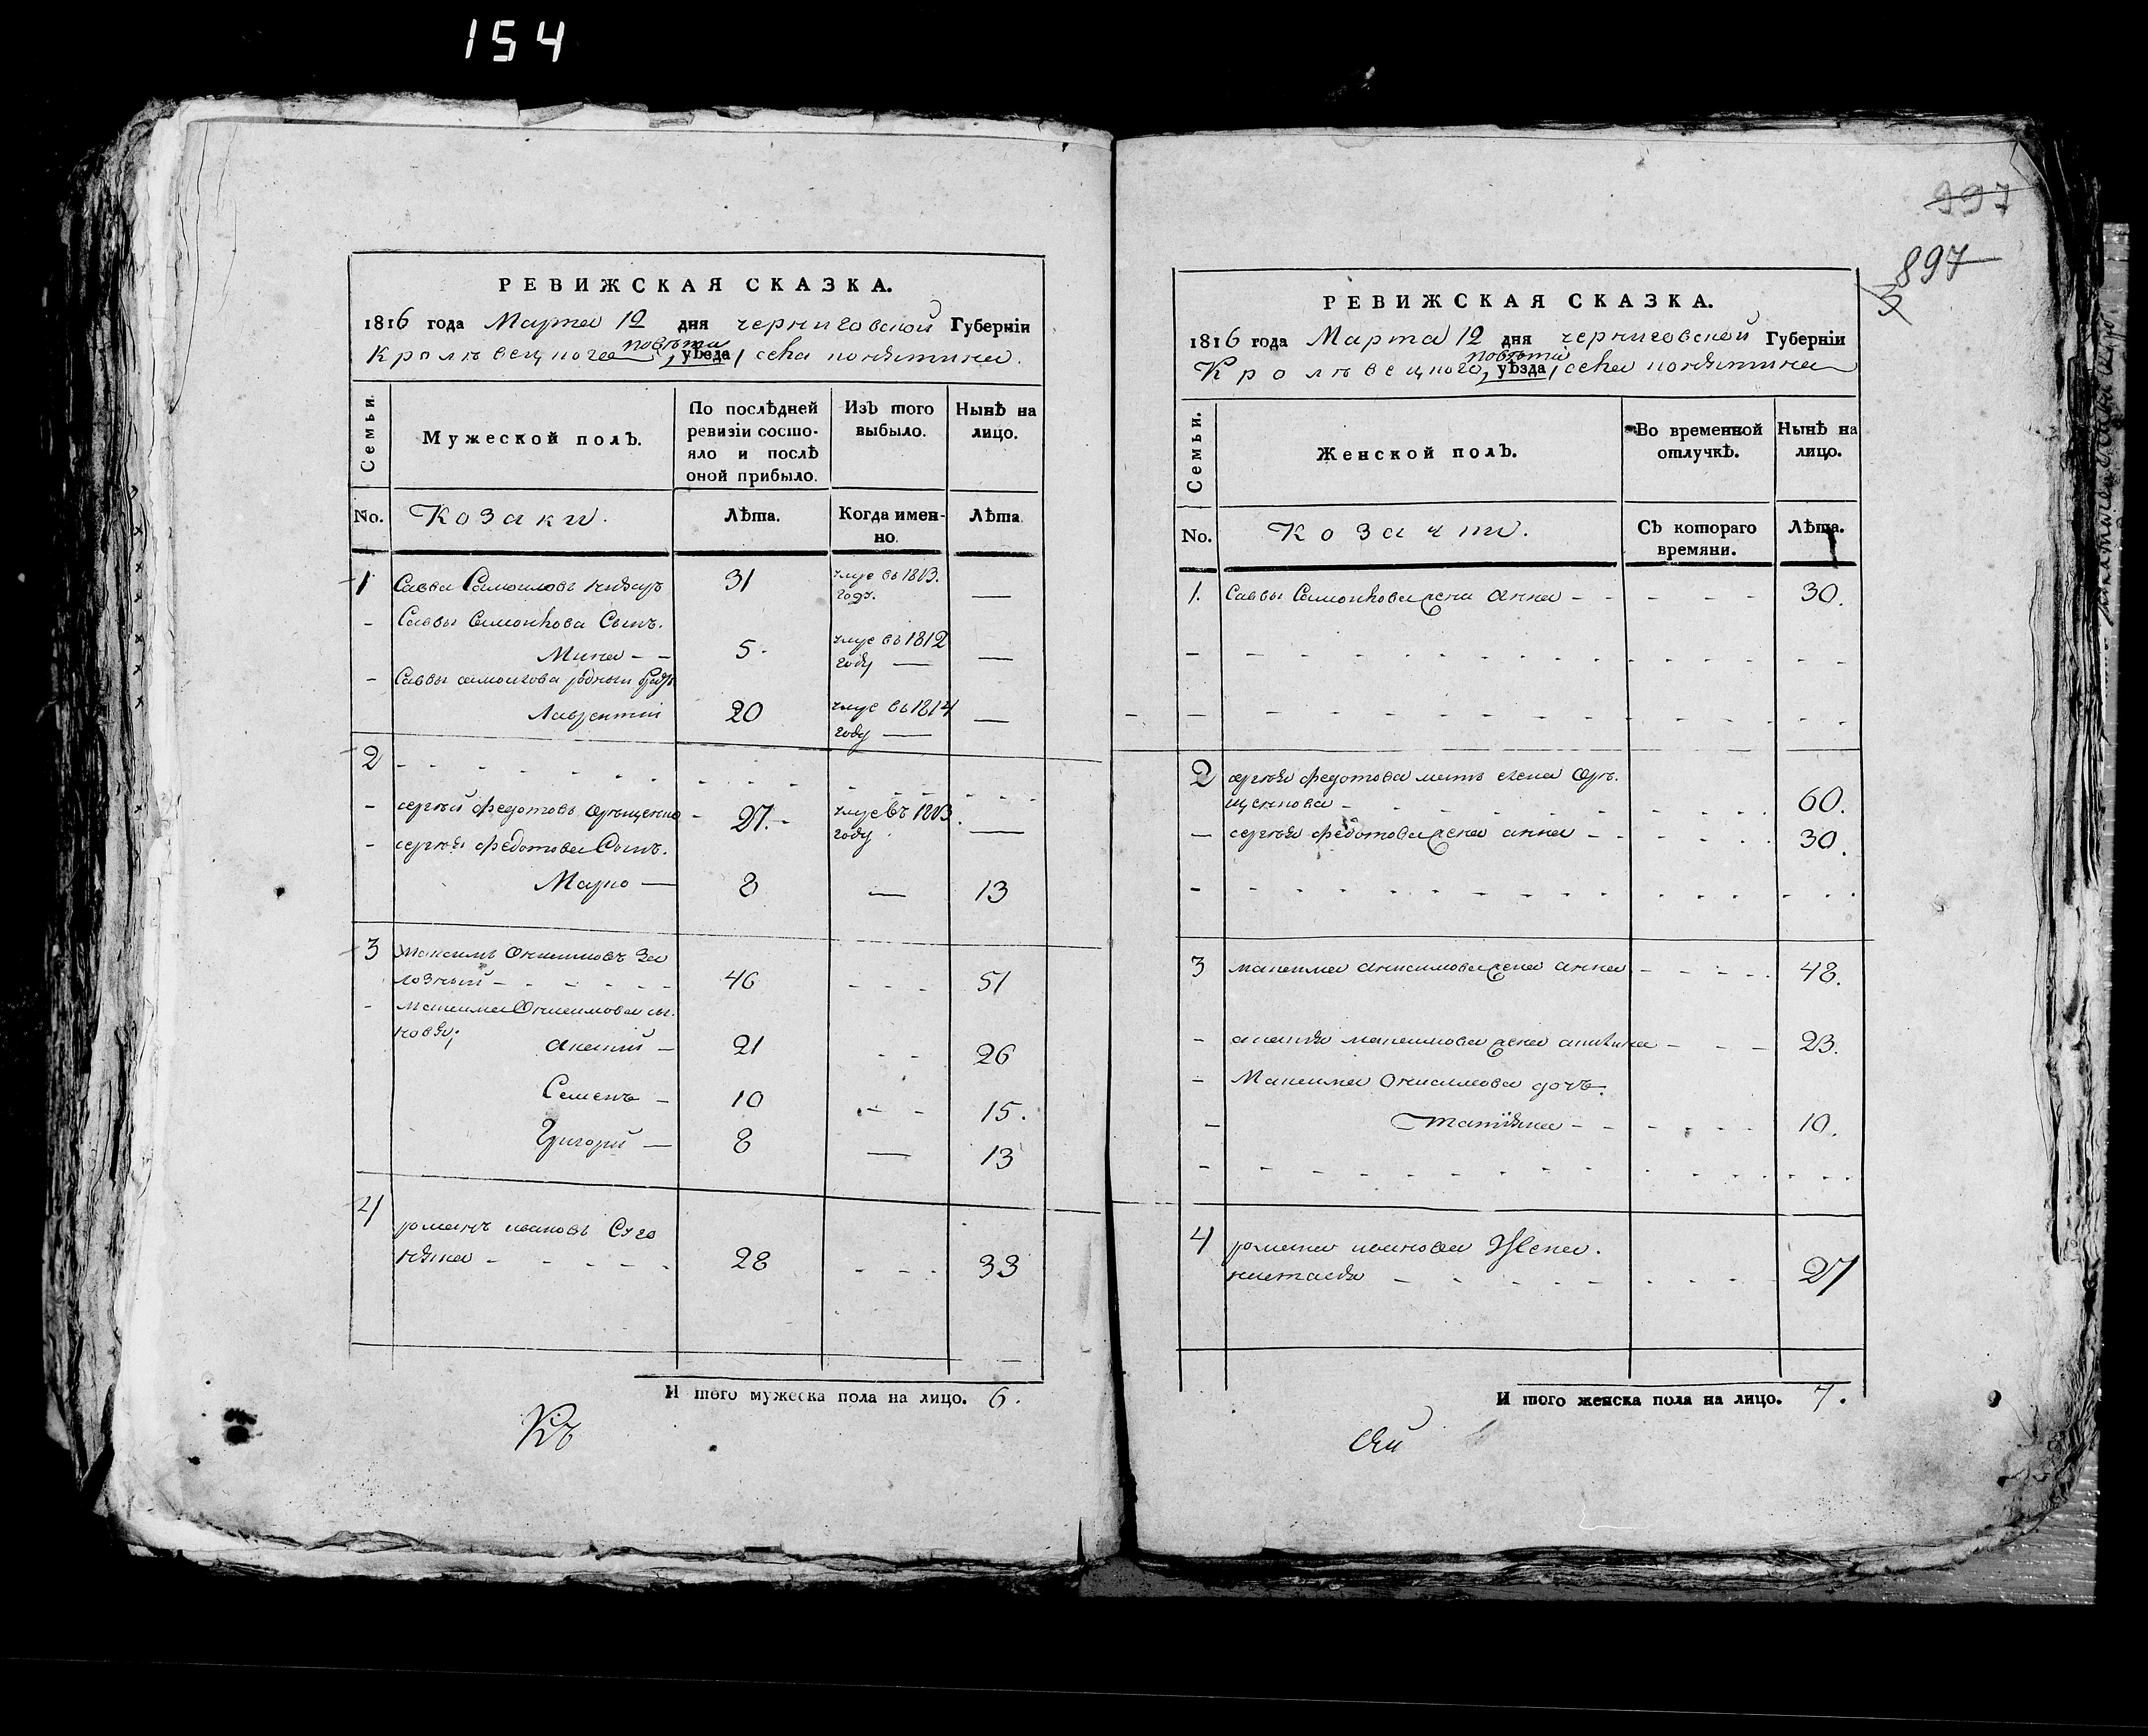 154
997
897
3
РЕВИЖСКАЯ СКАЗКА.
1816 года Марта 12 дня черниговской Губерніи
повѣта
Кролѣвецкого, уѣзда, села понятина.
Семьи.
Мужеской полъ.
По послѣдней ревизіи состояло и послѣ оной прибыло.
Изъ того выбыло.
Нынѣ на лицо.
No. Козаки. Лѣта. Когда именно. Лѣта
1 Савва Самоиловъ 31 умре въ 1813. —
году.
- Саввы Самойлова Сынъ.
Мина - - 5. умре въ 1812 —
году —
- Саввы самоилова родный братъ
Лаврентій 20 умре въ 1814 —
году —
2
- сергѣй федотовъ - 27. - умре въ 1813. —
году
- сергѣя федотова Сынъ.
Марко — 8 — 13
3 Максимъ Онисимовъ За
лозный - 46 - - - 51
- Максима Онисимова сы-
новья;
Акений - 21 - - 26
Семенъ - 10 - - 15.
Григорій — 8 — 13
4
романъ ивановъ
28 - - - 33
И того мужеска пола на лицо. 6.
Къ
РЕВИЖСКАЯ СКАЗКА.
1816 года Марта 12 дня черниговской Губерніи
повѣта
Кролѣвецкого, уѣзда, села понятина
Семьи.
Женской полъ.
Во временной отлучкѣ.
Нынѣ на лицо.
No. Козачки. Съ котораго времяни. Лѣта.
1. Саввы Самойлова жена Анна - - - - - 30.
2 сергѣя федотова мать елена
60.
— сергѣя федотова жена анна - - - - - 30.
3 максима анисимова жена анна - - - - 48.
- максимова жена - - - 23.
- Максима Онисимова дочь.
- татіяна - - - - - 10.
4 романа иванова Жена.
настасія - - - - - 27
И того женска пола на лицо. 7.